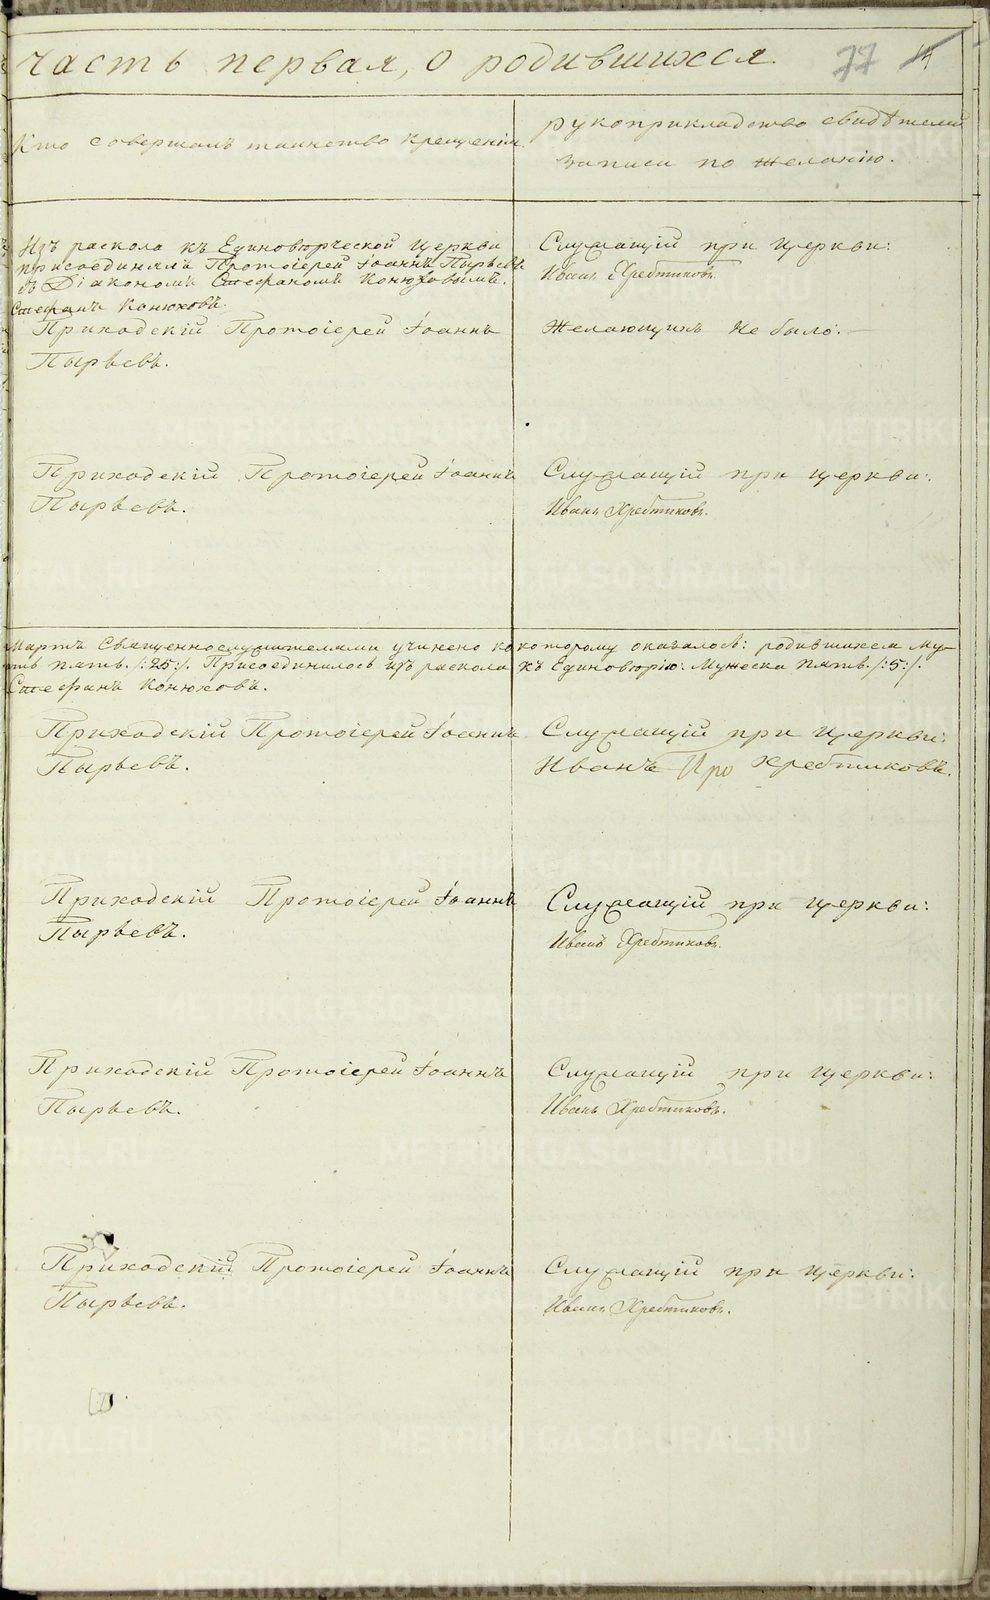 часть первая, о родившихся. 77
Кто совершалъ таинство крещенія.
рукоприкладство свидѣтелей
записи по желанію.
Изъ раскола къ Единовѣрческой церкви
присоединялъ Протоіерей Іоаннъ Пырьевъ
съ Діакономъ Стефаномъ Конюховымъ.
Стефанъ Конюховъ.
Служащій при церкви:
Иванъ Хребтиковъ.
Приходскій Протоіерей Іоаннъ
Пырьевъ.
Желающихъ не было:
Приходскій Протоіерей Іоаннъ
Пырьевъ.
Служащій при церкви:
Иванъ Хребтиковъ.
Мартъ Священнослужителями учинено по которому оказалось: родившихся му-
ть пять. /:25:/. Присоединилось изъ раскола къ Единовѣрію: Мужеска пять. /:5:/.
Стефанъ Конюховъ.
Приходскій Протоіерей Іоаннъ
Пырьевъ.
Служащій при церкви:
Иванъ Про Хребтиковъ.
Приходскій Протоіерей Іоаннъ
Пырьевъ.
Служащій при церкви:
Иванъ Хребтиковъ.
Приходскій Протоіерей Іоаннъ
Пырьевъ.
Служащій при церкви:
Иванъ Хребтиковъ.
Приходскій Протоіерей Іоаннъ
Пырьевъ.
Служащій при церкви:
Иванъ Хребтиковъ.
METRIKI.GASO-URAL.RU